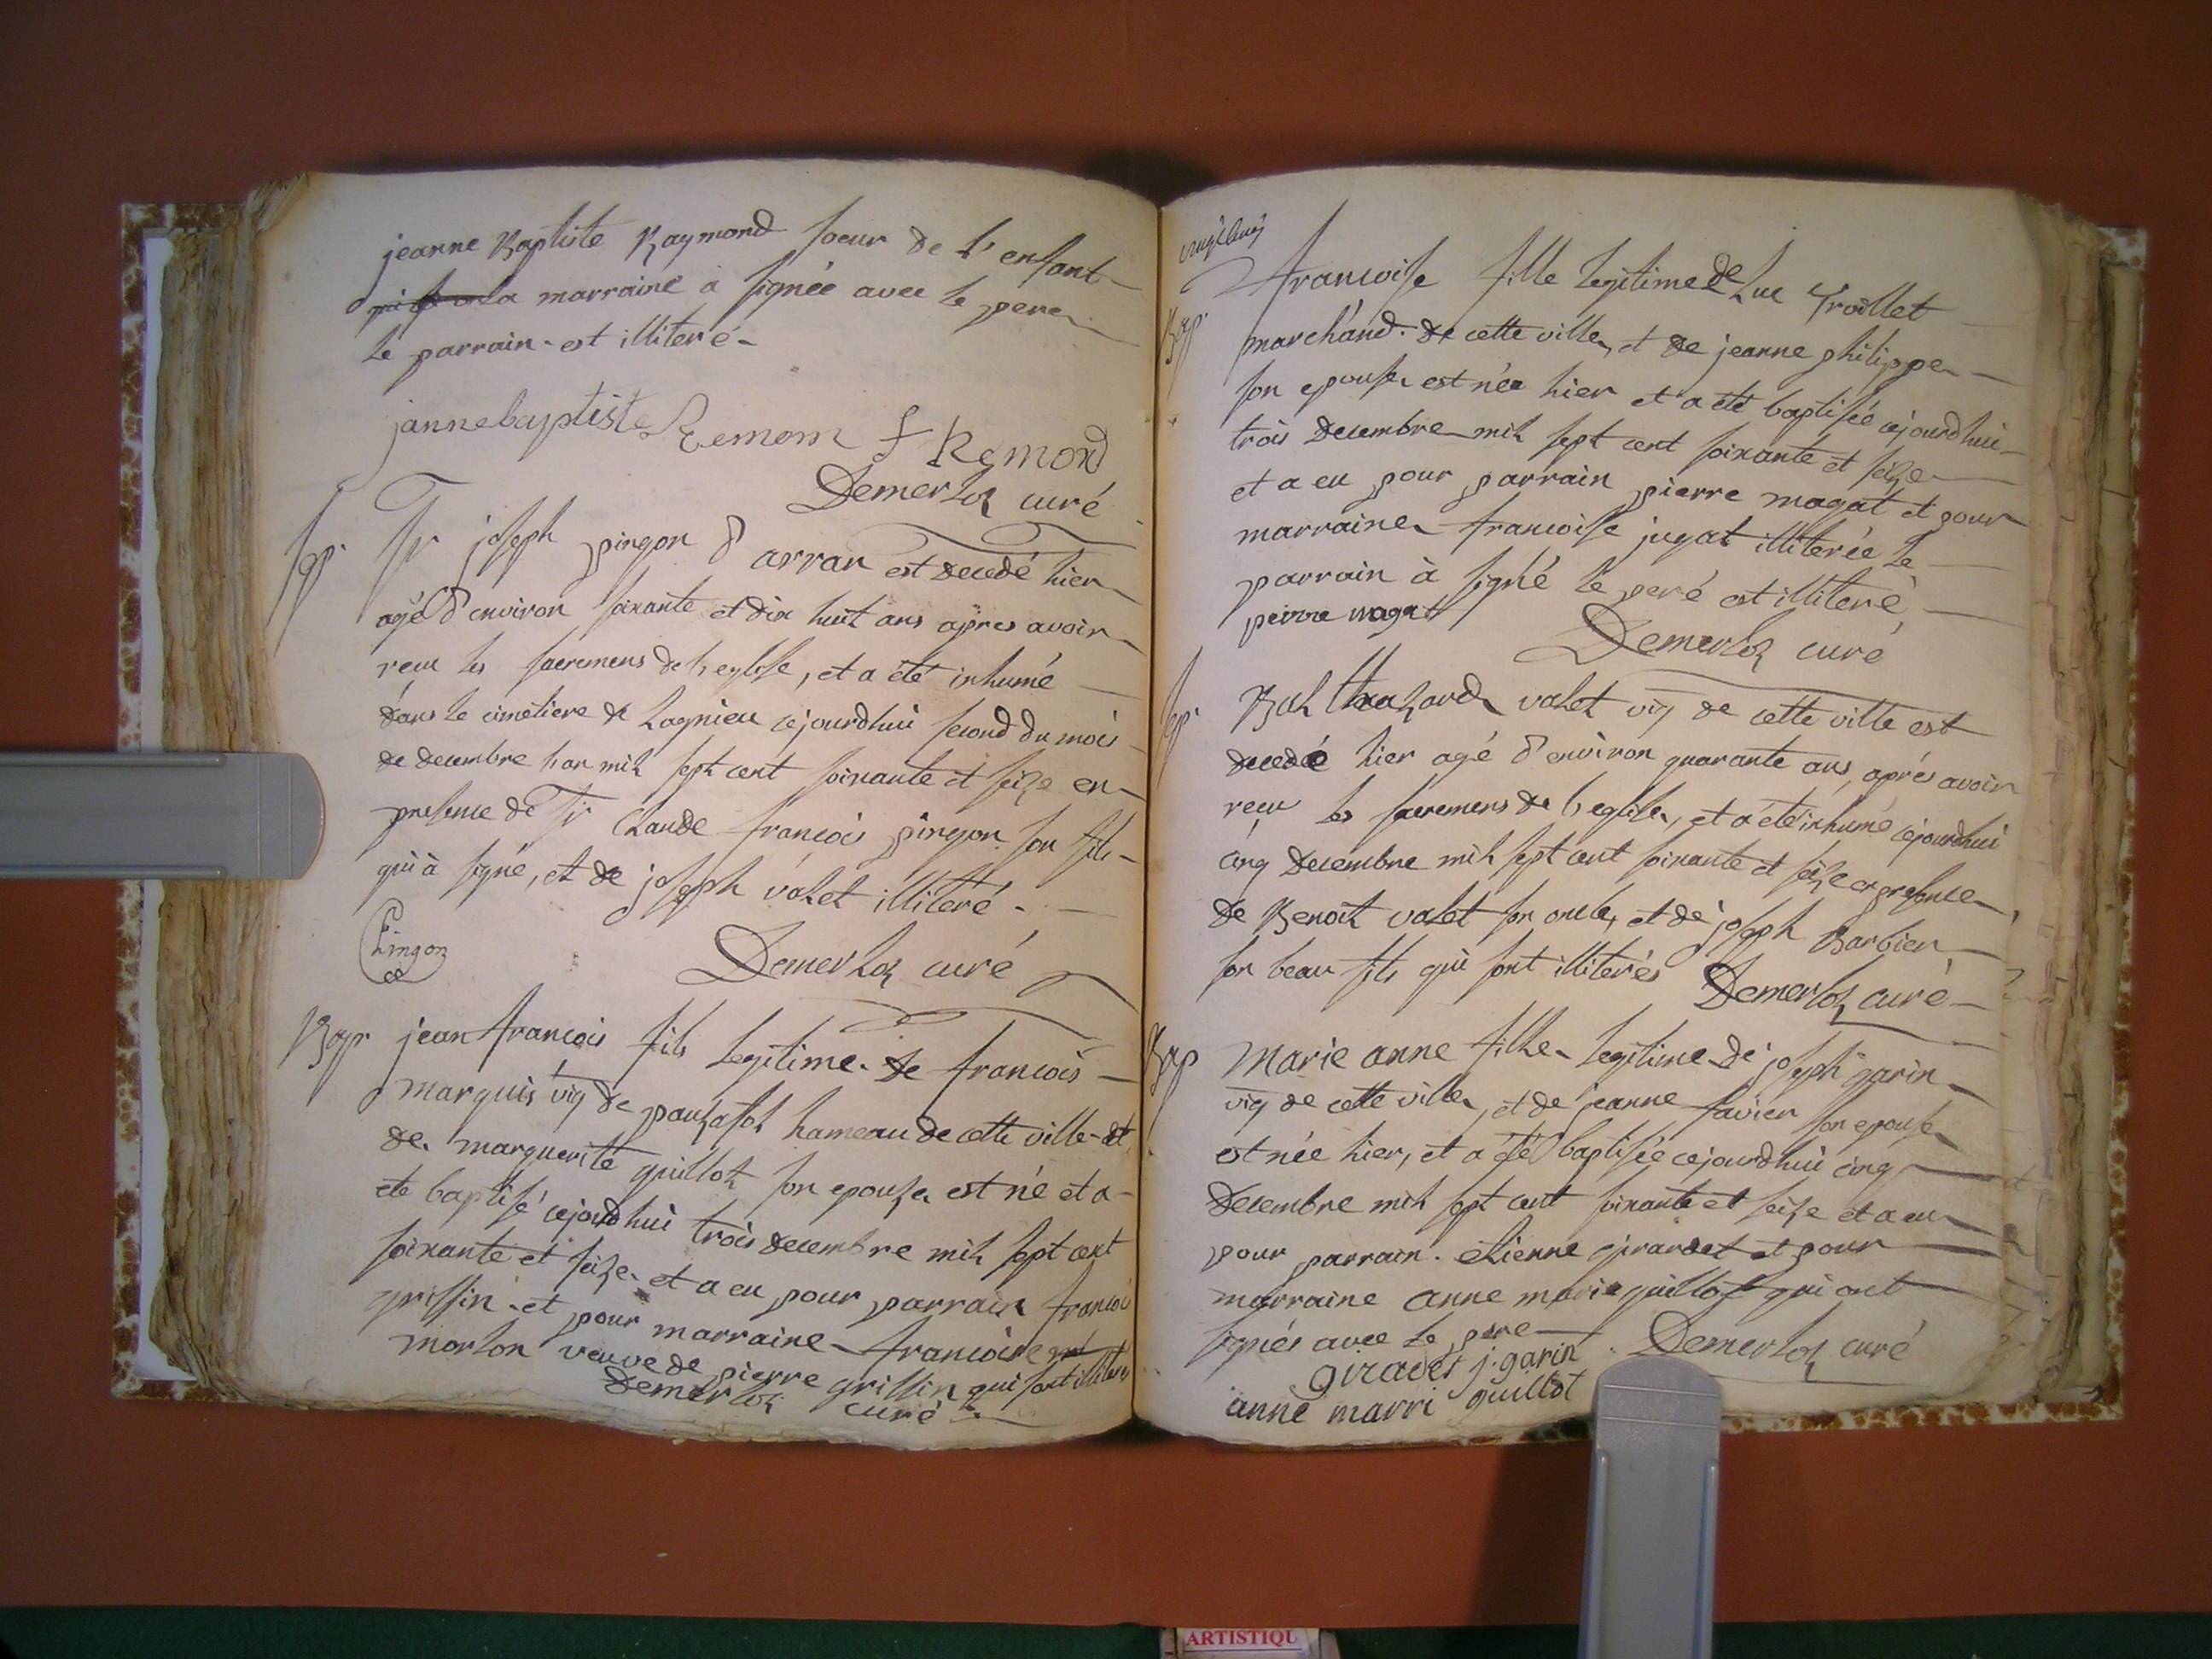 jeanne Baptiste Raymond soeur de l'enfant
la marraine a signée avec le pere
le parrain est illiteré
jannebaptiste Remom f Remond
Demerloz curé
sep. Sr joseph pingon d'arran est decedé hier
agé d'environ soixante et dix huit ans apres avoir
reçu les sacremens de l'eglise, et a été inhumé
dans le cimetiere de Lagnieu cejourdhui second du mois
de decembre l'an mil sept cent soixante et seize en
presence de Sr Claude francois pingon son fils
qui à signé, et de joseph valet illiteré
Pingon
Demerloz curé
Bap. jean francois fils legitime de francois
marquis vig de pouzafol hameau de cette ville et
de marguerite guillot son epouze est né et a
eté baptisé cejourdhui trois decembre mil sept cent
soixante et seize et a eu pour parrain francois
griffin et pour marraine francoise
morlon veuve de pierre griffin qui sont illiterés
Demerloz curé
Francoise fille legitime de Luc Troillet
Bap. marchand de cette ville, et de jeanne philippe
son epouse est née hier et a été baptisée cejourdhui
trois Decembre mil sept cent soixante et seize
et a eu pour parrain pierre magat et pour
marraine francoise jugat illiterée le
parrain à signé le peré est illiteré
peirre magat
Demerloz curé
sep. Balthazard valet vig de cette ville est
decedé hier agé d'environ quarante ans, aprés avoir
reçu les sacremens de l'eglise, et a été inhumé cejourdhui
cinq Decembre mil sept cent soixante et seize en presence
de Benoit valet son oncle, et de joseph Barbier
son beau fils qui sont illiterés Demerloz curé
Bap Marie anne fille legitime de joseph garin
vig de cette ville, et de jeanne favier son epouse
est née hier, et a été baptisée cejourdhui cinq
Decembre mil sept cent soixante et seize et a eu
pour parrain etienne girardet et pour
marraine anne marie guillot qui ont
signés avec le pere Demerloz curé
girades j. garin
anne marri guillot
ARTISTIQU